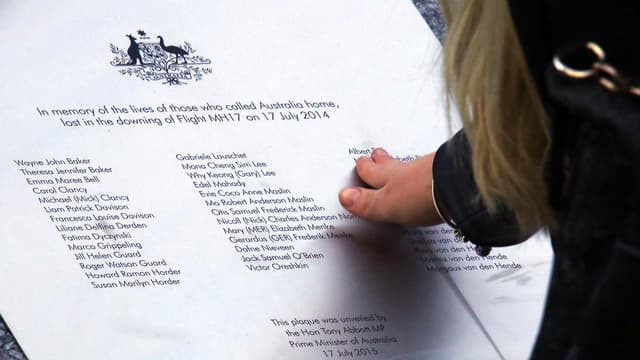 In memory of the lives of those who called Australia home,
lost in the downing of Flight MH17 on 17 July 2014
Wayne John Baker
Theresa Jennifer Baker
Emma Maree Bell
Carol Clancy
Michael (Mick) Clancy
Liam Patrick Davison
Francesca Louise Davison
Liliane Derden
Fatima Dyczynski
Marco Grippeling
Jill Helen Guard
Roger Watson Guard
Howard Ramon Horder
Susan Marilyn Horder
Gabriele Lauschet
Mona Cheng Sim Lee
Why Keong (Gary) Lee
Edel Mahady
Evie Coco Anne Maslin
Mo Robert Anderson Maslin
Otis Samuel Frederick Maslin
Nicoll (Nick) Charles Anderson
Mary (MER) Elizabeth Menke
Gerardus (GER) Frederik Menke
Dafne Nieveen
Jack Samuel O'Brien
Victor Oreshkin
Albert
van den
van den Hende
van den Hende
Margaux van den Hende
This plaque was unveiled by
the Hon Tony Abbott MP
Prime Minister of Australia
17 July 2015